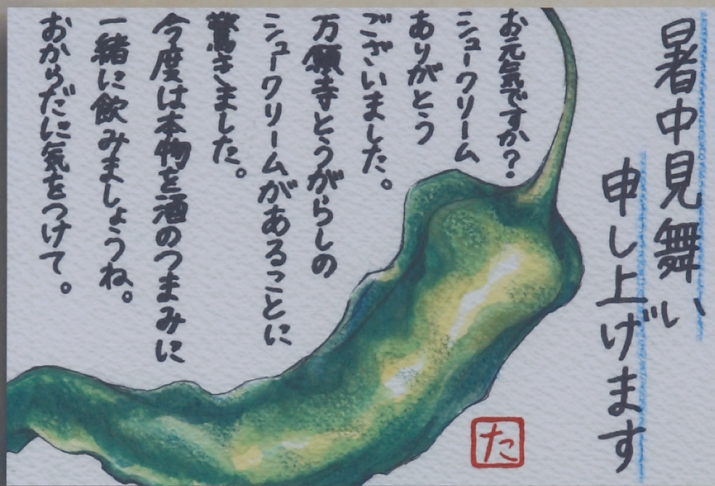 暑中見舞い
申し上げます
お元気ですか?
シュークリーム
ありがとう
ございました。
万願寺とうがらしの
シュークリームがあることに
驚きました。
今度は本物を酒のつまみに
一緒に飲みましょうね。
おからだに気をつけて。
た